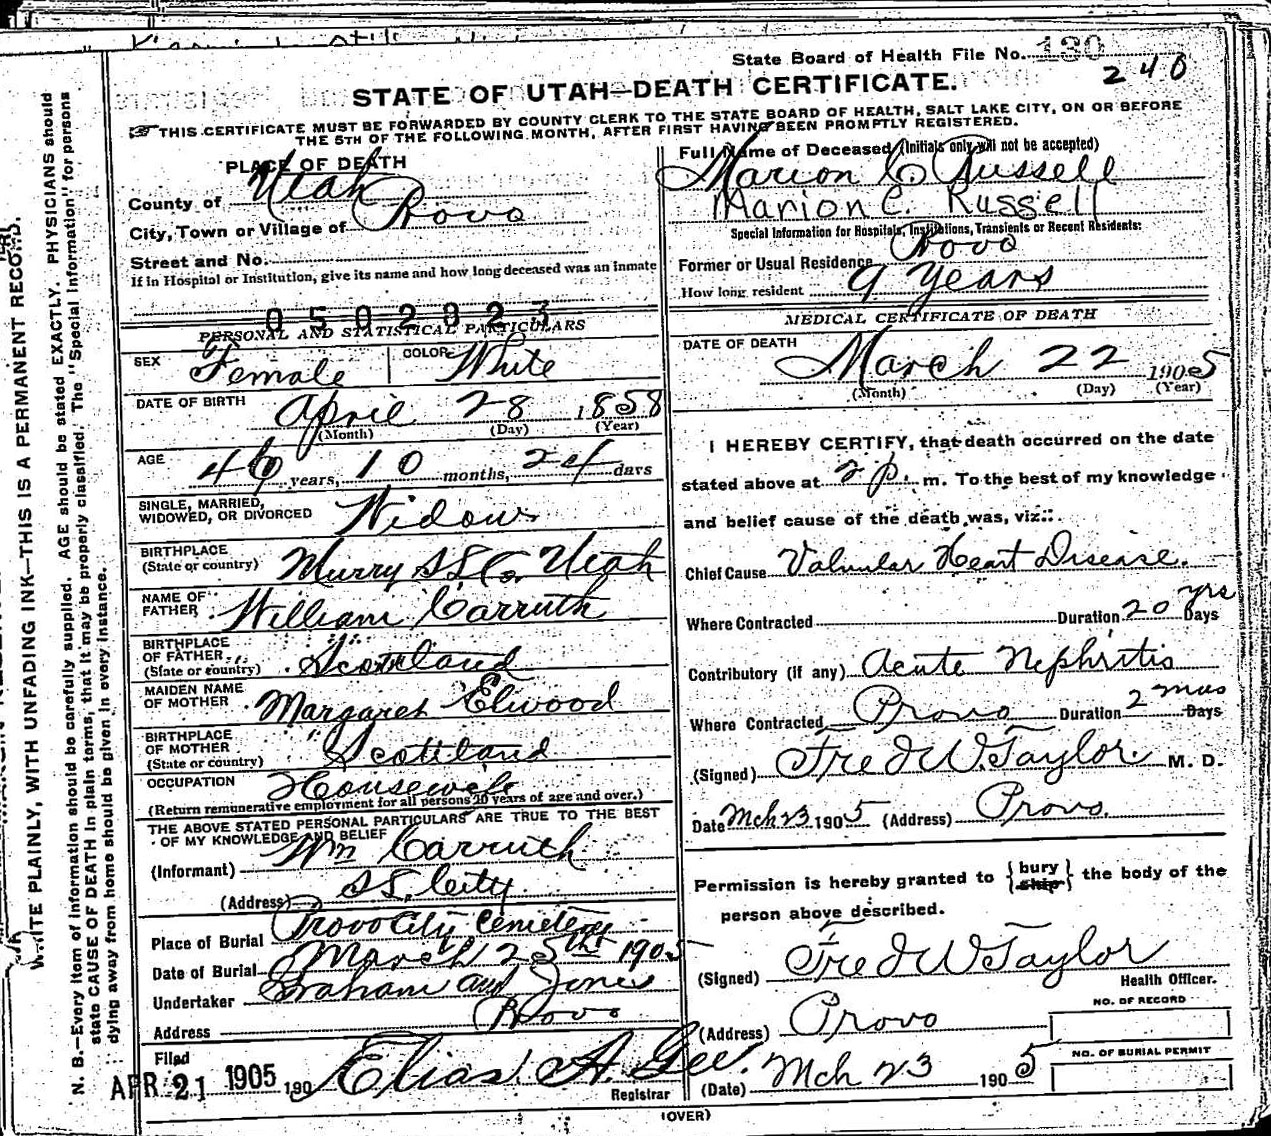 State Board of Health File No. 130
240
STATE OF UTAH—DEATH CERTIFICATE.
THIS CERTIFICATE MUST BE FORWARDED BY COUNTY CLERK TO THE STATE BOARD OF HEALTH, SALT LAKE CITY, ON OR BEFORE
THE 5TH OF THE FOLLOWING MONTH, AFTER FIRST HAVING BEEN PROMPTLY REGISTERED.
PLACE OF DEATH
County of Utah
City, Town or Village of Provo
Street and No.
If in Hospital or Institution, give its name and how long deceased was an inmate
0502923
PERSONAL AND STATISTICAL PARTICULARS
SEX Female COLOR White
DATE OF BIRTH April 28 1858
(Month) (Day) (Year)
AGE 46 years, 10 months, 24 days
SINGLE, MARRIED,
WIDOWED, OR DIVORCED Widow
BIRTHPLACE
(State or country) Murry S L Co. Utah
NAME OF
FATHER William Carruth
BIRTHPLACE
OF FATHER
(State or country) Scottland
MAIDEN NAME
OF MOTHER Margaret Elwood
BIRTHPLACE
OF MOTHER
(State or country) Scottland
OCCUPATION Housewife
(Return remunerative employment for all persons 10 years of age and over.)
THE ABOVE STATED PERSONAL PARTICULARS ARE TRUE TO THE BEST
OF MY KNOWLEDGE AND BELIEF
(Informant) Wm Carruth
(Address) S L City
Place of Burial Provo City Cemetery
Date of Burial March 25th 1905
Undertaker Graham and Jones
Address Provo
Filed
APR 21 1905 190 Elias A. Gee.
Registrar
Full Name of Deceased (Initials only will not be accepted)
Marion C. Russell
Marion C. Russell
Special Information for Hospitals, Institutions, Transients or Recent Residents:
Former or Usual Residence Provo
How long resident 9 Years
MEDICAL CERTIFICATE OF DEATH
DATE OF DEATH
March 22 1905
(Month) (Day) (Year)
I HEREBY CERTIFY, that death occurred on the date
stated above at 2 p. m. To the best of my knowledge
and belief cause of the death was, viz.:
Chief Cause Valvular Heart Disease.
Where Contracted Duration 20 yrs Days
Contributory (if any) Acute Nephritis
Where Contracted Provo Duration 2 mos Days
(Signed) Fred W. Taylor. M. D.
Date Mch 23 1905 (Address) Provo.
Permission is hereby granted to { bury ship } the body of the
person above described.
(Signed) Fred W Taylor
Health Officer.
(Address) Provo
NO. OF RECORD
NO. OF BURIAL PERMIT
(Date) Mch 23 1905
(OVER)
WRITE PLAINLY, WITH UNFADING INK—THIS IS A PERMANENT RECORD.
N. B.—Every item of information should be carefully supplied. AGE should be stated EXACTLY. PHYSICIANS should
state CAUSE OF DEATH in plain terms, that it may be properly classified. The "Special Information" for persons
dying away from home should be given in every instance.